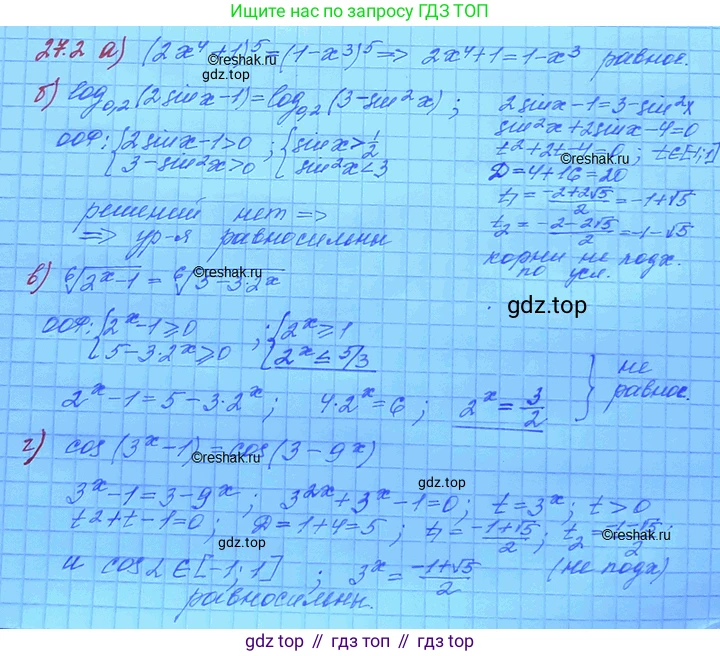 Ищите нас по запросу ГДЗ ТОП
27.2 а) (2x⁴+1)⁵=(1-x³)⁵ => 2x⁴+1=1-x³ равнос.
©reshak.ru
gdz.top
б) log₀,₂(2sinx-1)=log₀,₂(3-sin²x);
ООФ: {2sinx-1>0 ; {sinx>1/2
{3-sin²x>0 {sin²x<3
2sinx-1=3-sin²x
sin²x+2sinx-4=0
t²+2t-4=0; t∈[-1;1]
©reshak.ru
Д=4+16=20
t₁=(-2+2√5)/2=-1+√5
t₂=(-2-2√5)/2=-1-√5
корни не подх.
по усл.
решений нет =>
=> ур-я равносильны
в) ⁶√(2ˣ-1) = ⁶√(5-3·2ˣ)
©reshak.ru
gdz.top
ООФ: {2ˣ-1⩾0 ; {2ˣ⩾1
{5-3·2ˣ⩾0 {2ˣ≤5/3
2ˣ-1=5-3·2ˣ; 4·2ˣ=6; 2ˣ=3/2
} не
равнос.
г) cos(3ˣ-1)=cos(3-9ˣ)
©reshak.ru
gdz.top
3ˣ-1=3-9ˣ; 3²ˣ+3ˣ-1=0; t=3ˣ; t>0
t²+t-1=0; Д=1+4=5; t₁=(-1+√5)/2; t₂=(-1-√5)/2;
gdz.top
©reshak.ru
(не подх)
и cosα∈[-1;1]; 3ˣ=(-1+√5)/2
равносильны.
gdz.top // гдз топ // gdz.top // гдз топ